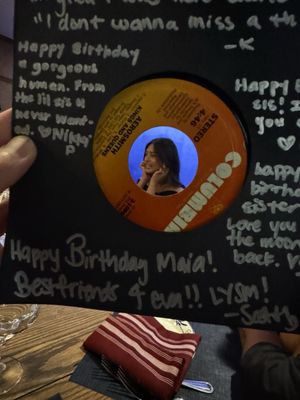 "I dont wanna miss a th
-K
Happy Birthday
a gorgeous
human. From
the lil sis u
never want-
ed. ♡Nikki
:P
Happy B
sis!
you a
♡
happy
birth
sister
Love you
the moon
back.
STEREO
4:46
AEROSMITH
KINGS AND QUEENS
COLUMBIA
Happy Birthday Maia!
Bestfriends 4 eva!! LYSM!